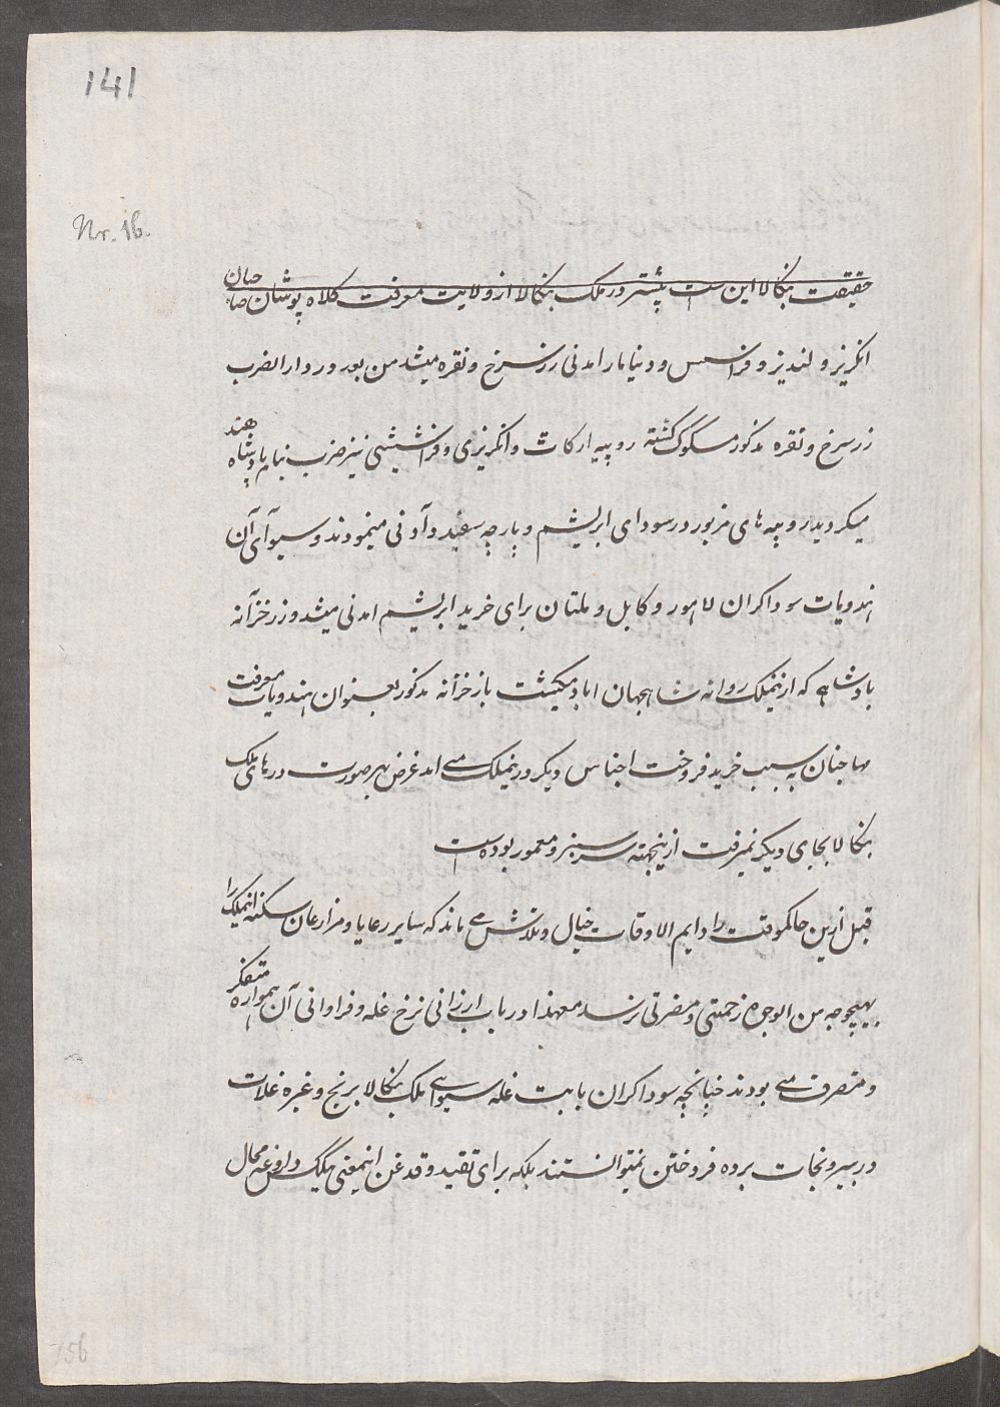 141
Nr. 16.
حقیقت بنکالا این است پیشتر در ملک بنکالا از ولایت معرفت کلاه پوشان صاحبان
انکریز و لندیز و فرانسس و دنیامار امدنی زر سرخ و نقره میشد من بعد در دار الضرب
زر سرخ و نقره مذکور مسکوک کشته روپیه ارکات و انکریزی و فرانشیشی نیز ضرب بنام پادشاه هند
میکردید روپیه های مزبور در سودای ابریشم و پارچه سفید و آدنی مینمودند و سیوآی آن
هندویات سوداکران لاهور و کابل و ملتان برای خرید ابریشم امدنی میشد و زر خزآنه
بادشاهی که ازینملک روانه شاهجهان اباد میکشت باز خزآنه مذکور بعنوان هندویات معرفت
مهاجنان به سبب خرید فروخت اجناس دیکر درینملک می امد غرض بهر صورت درهای ملک
بنکالا بجای دیکر نمیرفت ازینجهته سرسبز و معمور بوده است
قبل ازین حاکموقت را دایم الاوقات خیال و تلاش می ماند که سایر رعایا و مزارعان سکنه اینملک را
بهیچوجه من الوجوه زحمتی و مضرتی نرسد معهذا در باب ارزانی نرخ غله و فراوانی آن همواره متفکر
و متصرف می بودند خپانچه سوداکران بابت غله سیواے ملک بنکالا برنج و غیره غلات
در بیرونجات برده فروختن نمیتوانستند بلکه برای تقید و قدغن اینمعنی یکیک داروغه محال
156